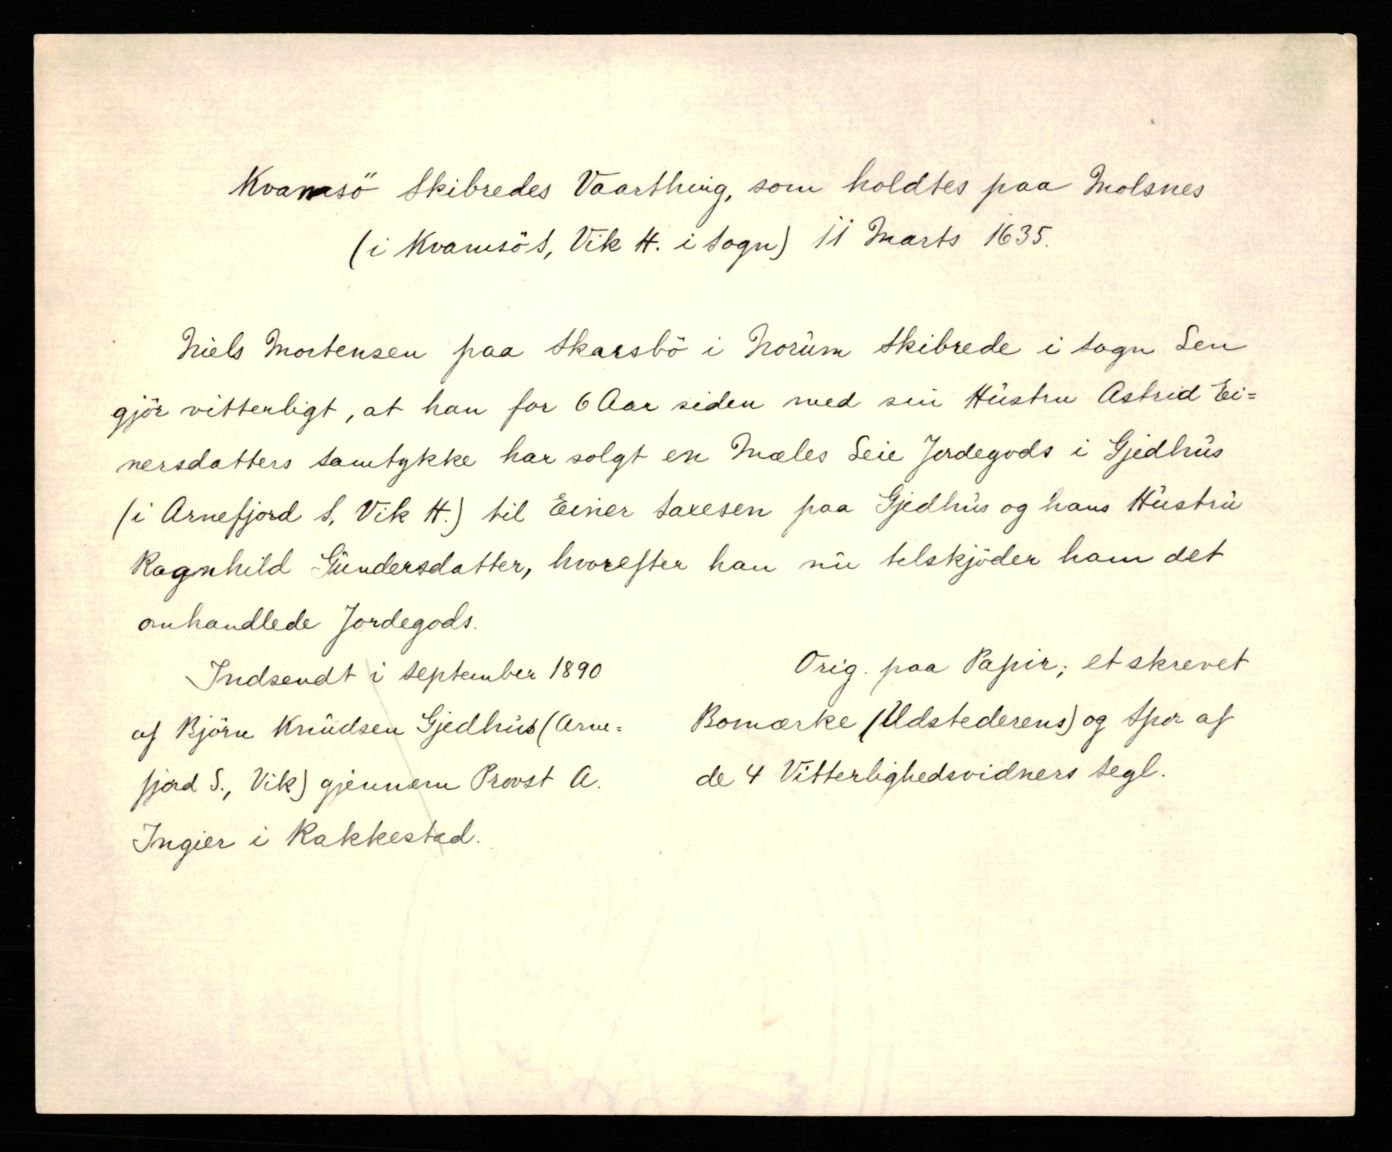 Kvamsö Skibredes Vaarthing, som holdtes paa Molsnes
(i Kvamsö S, Vik H. i Sogn) 11 Marts 1635.
Niels Mortensen paa Skarsbö i Norum Skibrede i Sogn Len
gjör vitterligt, at han for 6 Aar siden med sin Hustru Astrid Ei=
nersdatters Samtykke har solgt en Mæles Leie Jordegods i Gjedhus
(i Arnefjord S, Vik H.) til Einer Saxesen paa Gjedhus og hans Hustru
Ragnhild Gundersdatter, hvorefter han nu tilskjöder ham det
omhandlede Jordegods.
Indsendt i September 1890
af Björn Knudsen Gjedhus (Arne=
fjord S., Vik) gjennem Provst A.
Ingier i Rakkestad.
Orig. paa Papir; et skrevet
Bomærke (Udstederens) og Spor af
de 4 Vitterlighedsvidners Segl.